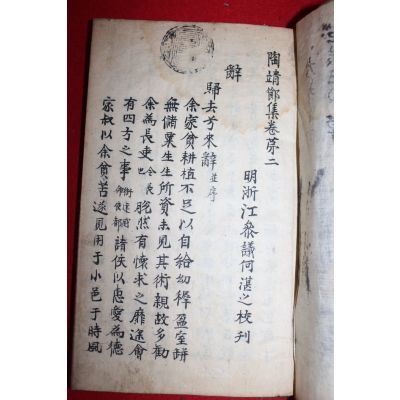 陶靖節集卷苐二
明浙江叅議何湛之校刋
辭
歸去兮來辭並序
余家貧耕植不足以自給幼稺盈室缾
無儲粟生生所資未見其術親故多勸
余爲長吏令長也脫然有懷求之靡途會
有四方之事諸侯以惠愛爲德
家叔以余貧苦遂見用于小邑于時風